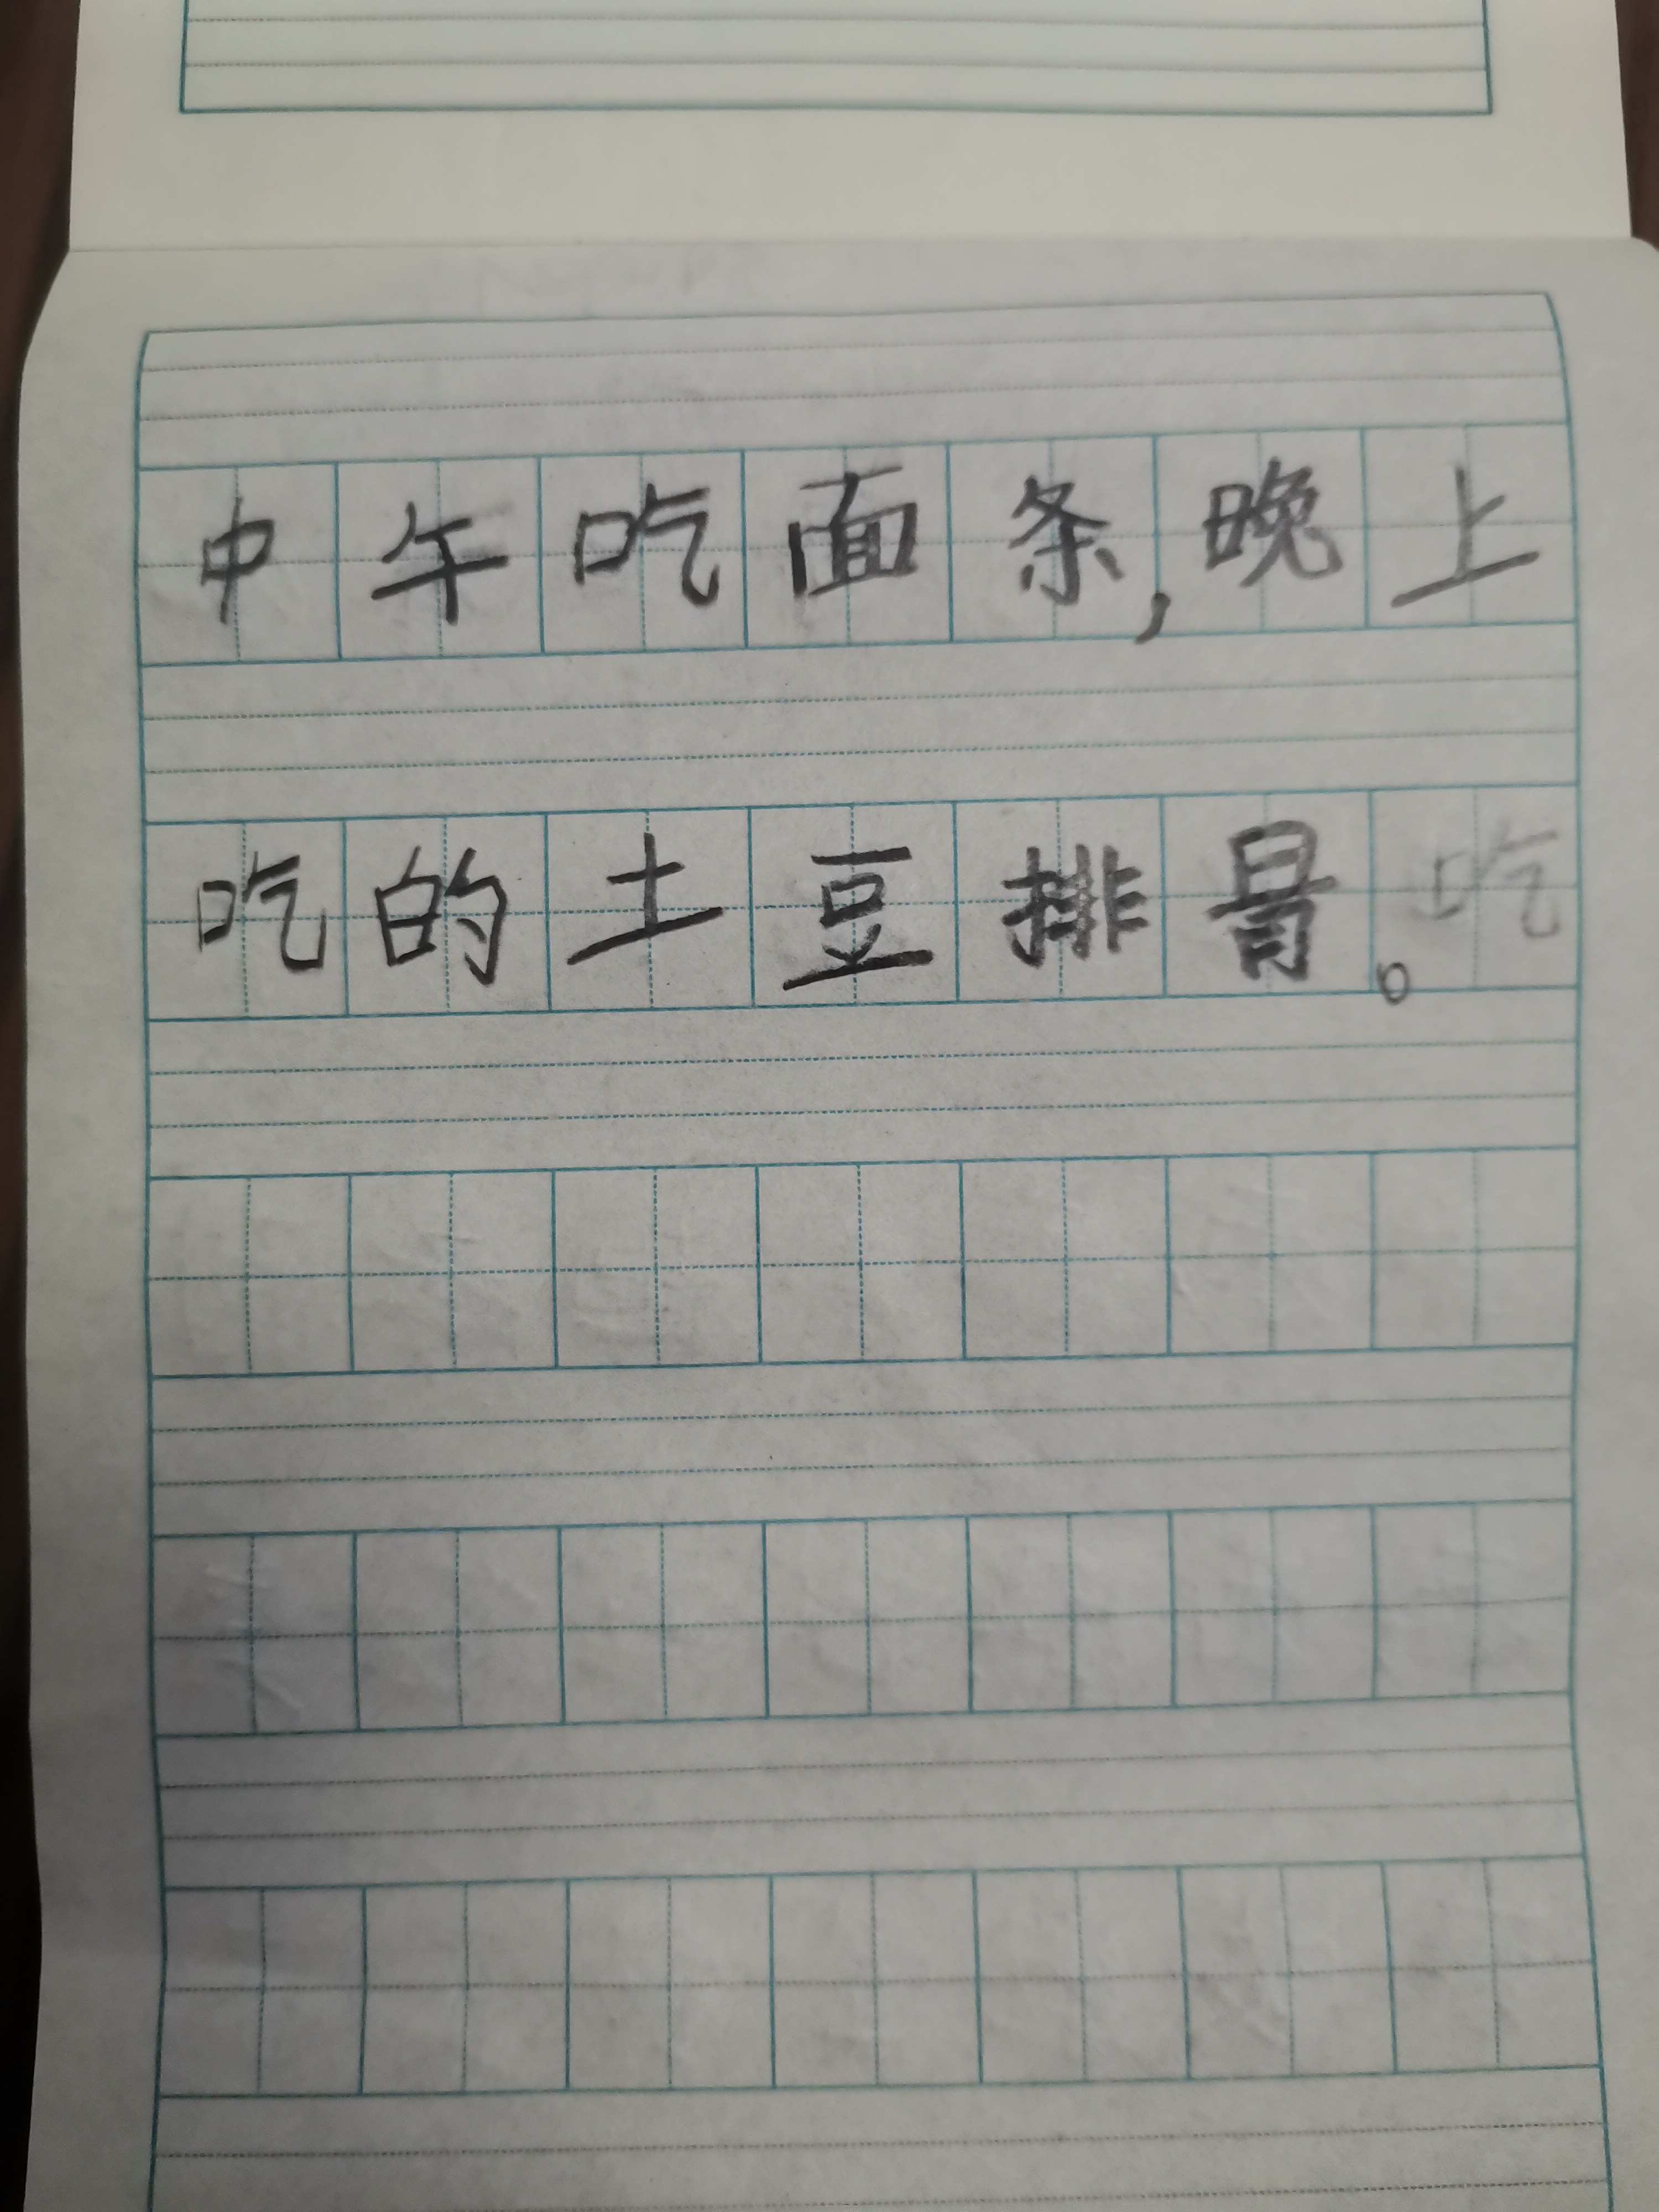 中午吃面条,晚上
吃的土豆排骨。吃